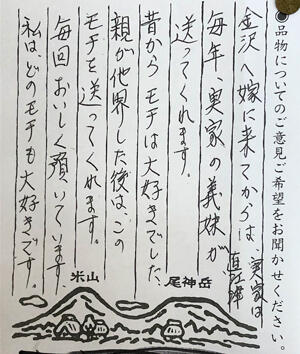 ◎品物についてのご意見ご希望をお聞かせください。
金沢へ嫁に来てからは、実家は直江津
毎年、実家の義妹が
送ってくれます。
昔からモチは大好きでした、
親が他界した後は、この
モチを送ってくれます。
毎回おいしく頂いています、
私はどのモチも大好きです。
米山
尾神岳